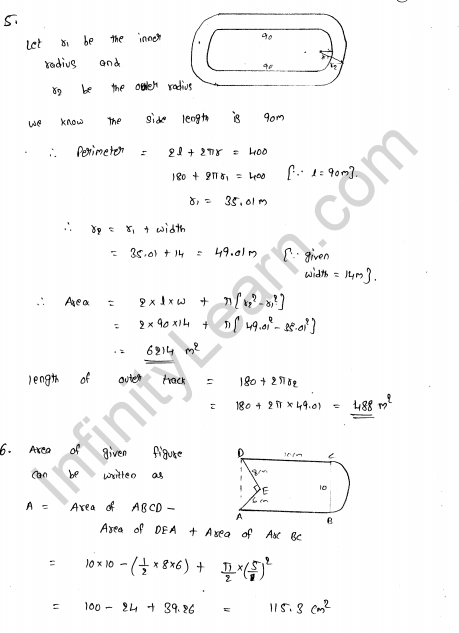 5.
90
90
r1
r2
Let r1 be the inner
radius and
r2 be the outer radius
we know the side length is 90m
∴ Perimeter = 2l + 2πr = 400
180 + 2πr1 = 400 [∵ l = 90m].
r1 = 35.01m
∴ r2 = r1 + width
= 35.01 + 14 = 49.01m [∵ given
width = 14m].
∴ Area = 2 × l × w + π[r2² - r1²]
= 2 × 90 × 14 + π[49.01² - 35.01²]
∴ = 6214 m²
length of outer track = 180 + 2πr2
= 180 + 2π × 49.01 = 488 m²
6. Area of given figure
can be written as
D 10cm C
8cm
E
10
6cm
A B
A = Area of ABCD –
Area of DEA + Area of Arc BC
= 10×10 - (1/2 × 8×6) + π/2 × (5)²
= 100 - 24 + 39.26 = 115.3 cm²
InfinityLearn.com